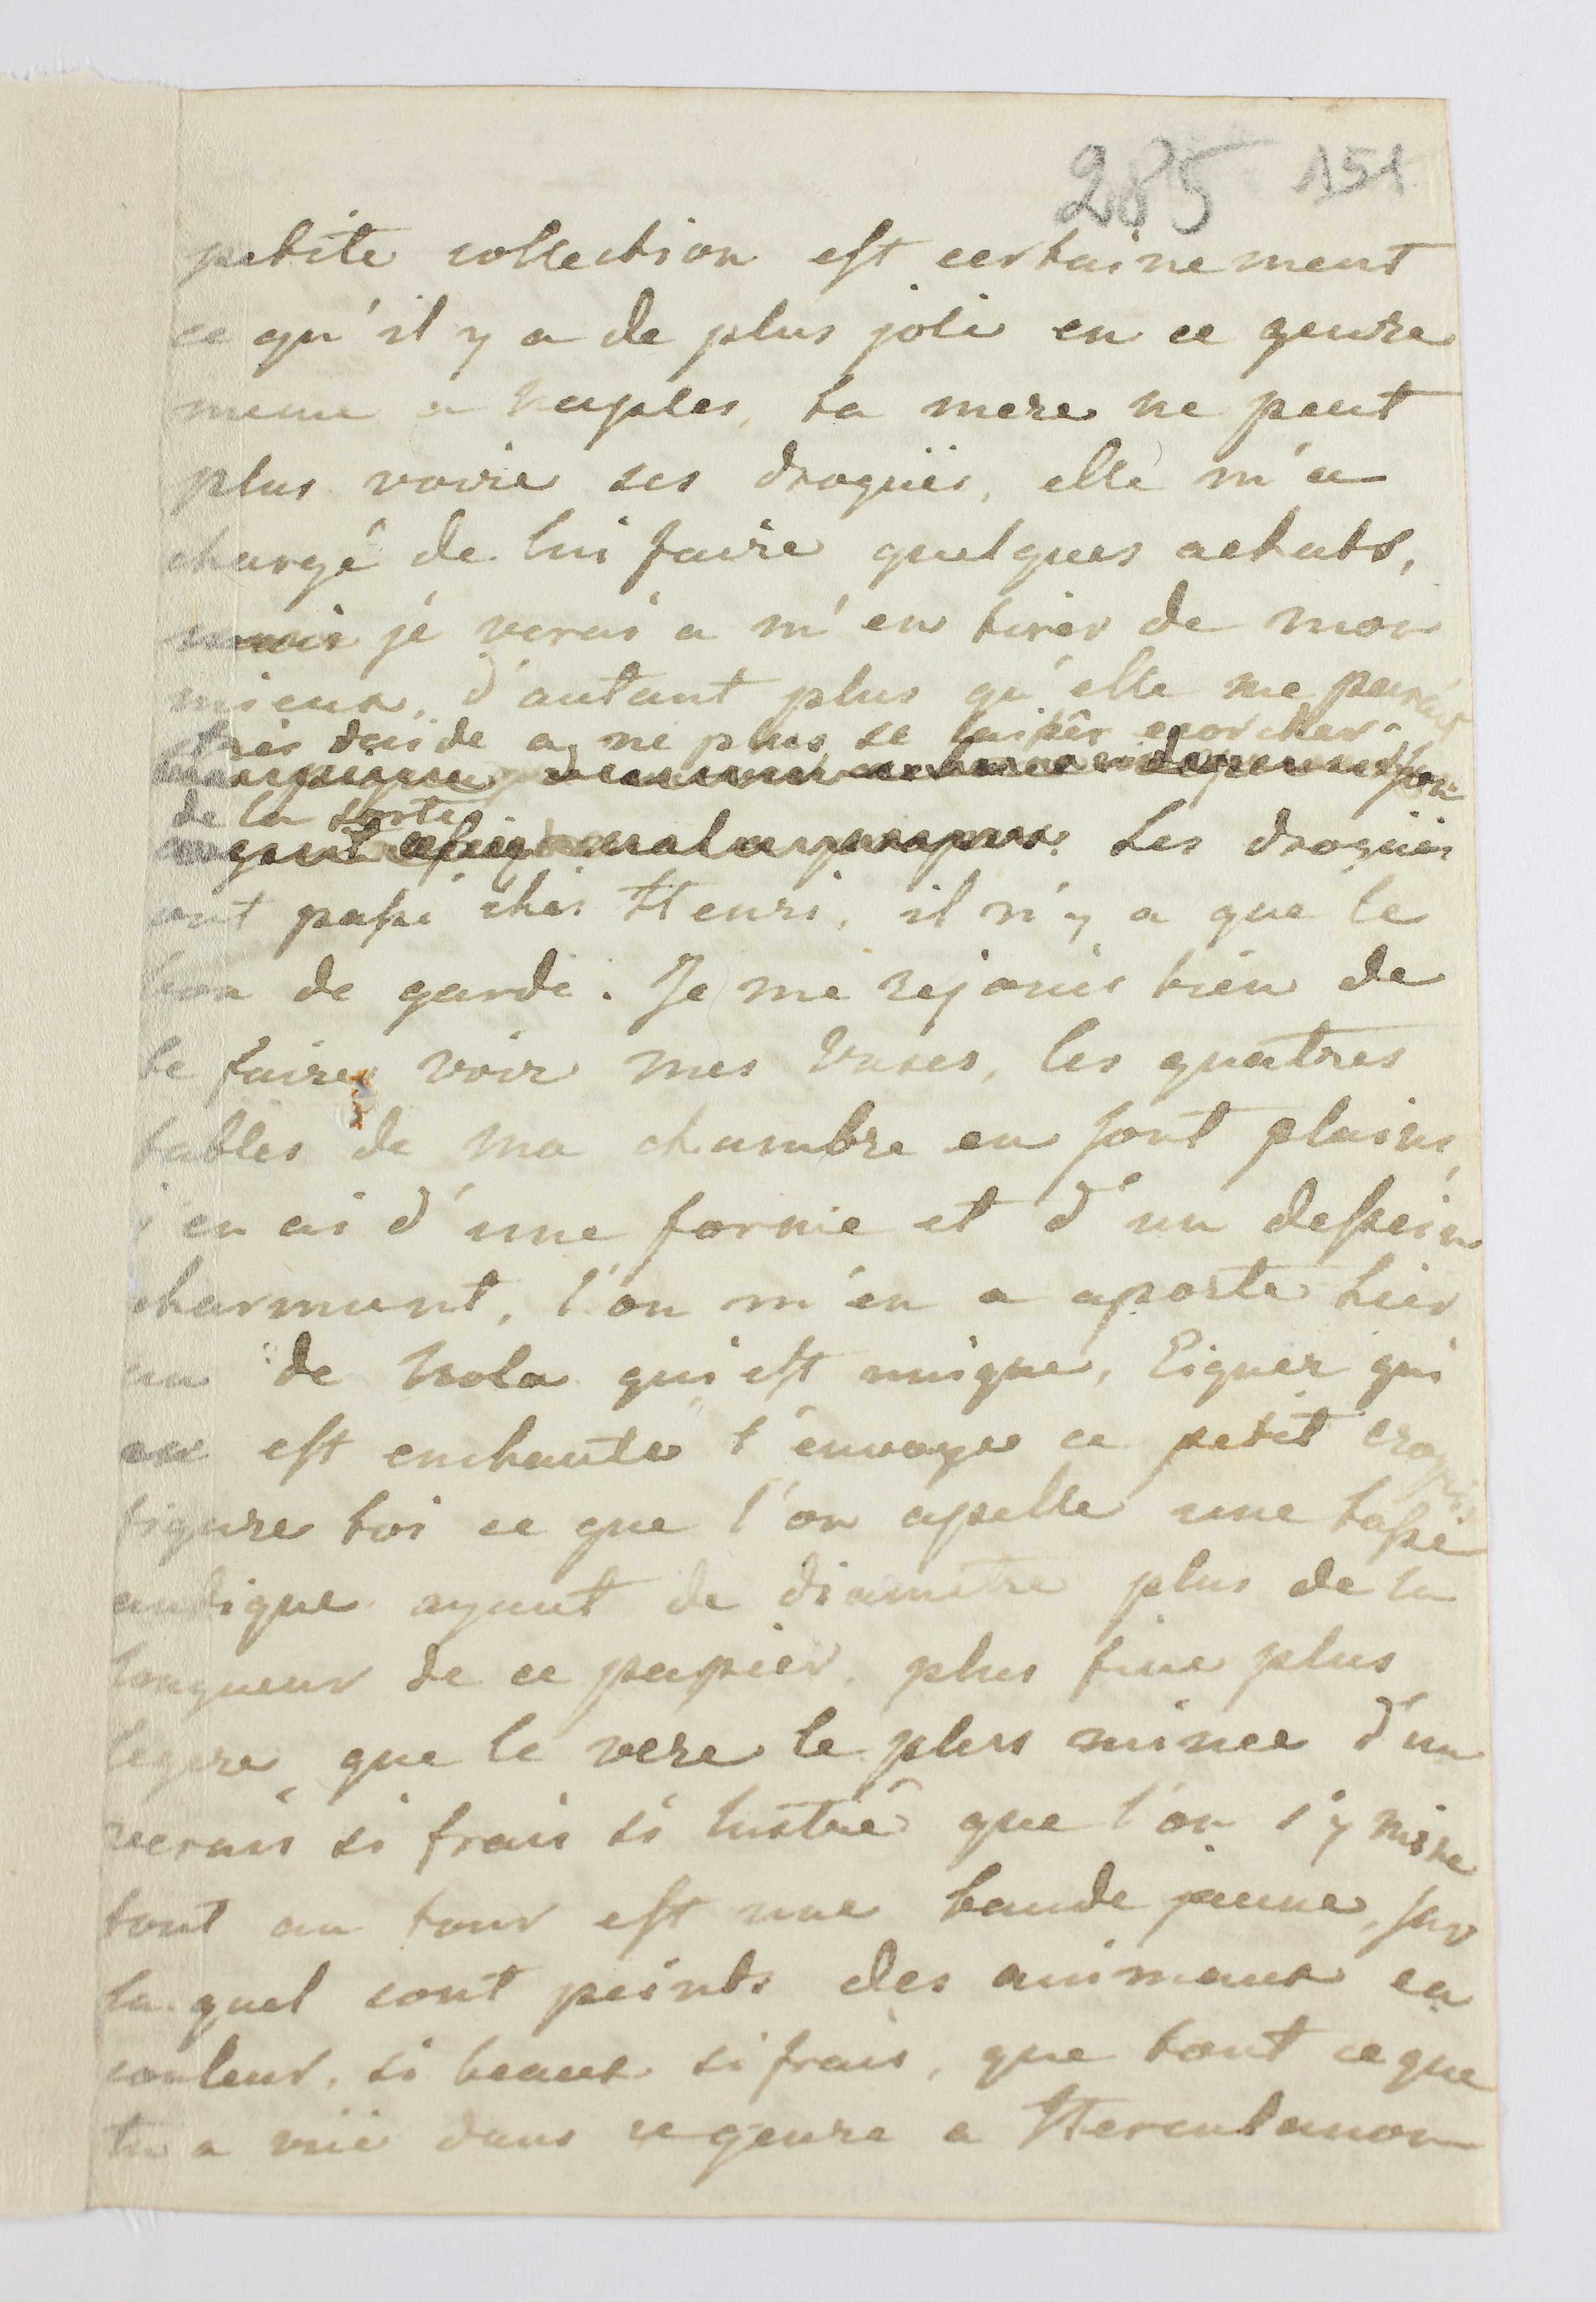 285 151
petite collection est certainement
ce qu'il y a de plus joli en ce genre
meme a Naples, ta mere ne peut
plus voire ses droguës, elle m'a
chargé de lui faire quelques achats,
mais je verai a m'en tirer de mon
mieux, d'autant plus qu'elle me parait
très deside a ne plus se laisser ecorcher
de la sorte
Les droguës
ont passé ches Henri, il n'y a que le
bon de garde. Je me rejouis bien de
te faire voir mes Vases, les quatres
tables de ma chambre en sont plains,
j'en ai d'une forme et d'un dessein
charmant, l'on m'en a aporté hier
un de Nola qui est unique, Eigner qui
en est enchanté t'envoye ce petit croquis
figure toi ce que l'on apelle une tasse
antique ayant de diametre plus de la
longueur de ce papier, plus fine plus
legere que le vere le plus mince d'un
vernis si frais si lustré que l'on s'y mire
tout au tour est une bande jaune, sur
la quel sont peints des animaux en
couleur, si beaux si frais, que tout ce que
tu a vüe dans ce genre a Herculanon